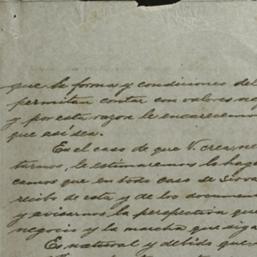 que la forma y condiciones del
permitan contar con valores neg
y por esta razon le encarecemos
que asi sea.
En el caso de que V. crea ne
tarnos, le estimaremos lo haga
camos que en todo caso se sirva
recibo de esta y de los document
y avisarnos la perspectiva que
negocio y la marcha que siga
Es natural y debido que